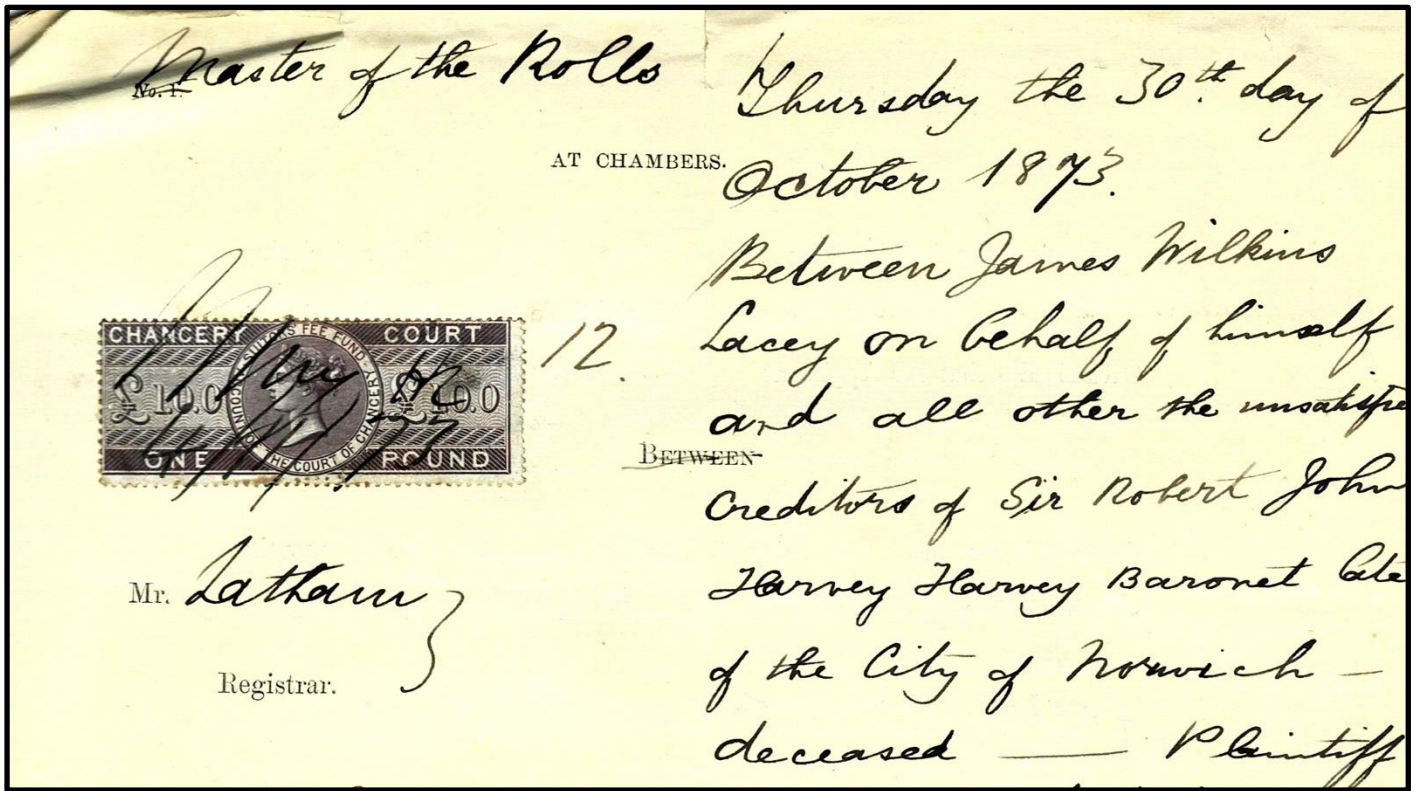 Master of the Rolls
No. 1.
AT CHAMBERS.
CHANCERY COURT
SUITORS' FEE FUND
ACCOUNT OF THE COURT OF CHANCERY
£1.0.0 £1.0.0
ONE POUND
12.
Mr. Latham
Registrar.
Thursday the 30th. day of
October 1873.
BETWEEN
Between James Wilkins
Lacey on behalf of himself
and all other the unsatisfie
Creditors of Sir Robert John
Harvey Harvey Baronet late
of the City of Norwich —
deceased — Plaintiff